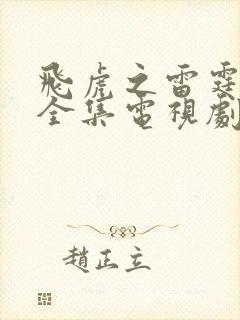 飛虎之雷霆
全集電視劇
趙正立